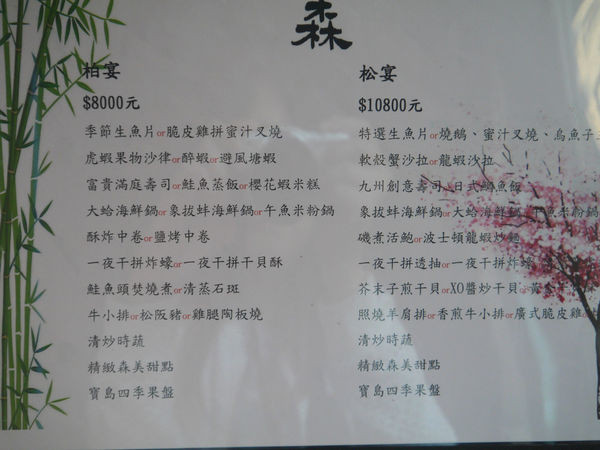 森
柏宴
$8000元
季節生魚片or脆皮雞拼蜜汁叉燒
虎蝦果物沙律or醉蝦or避風塘蝦
富貴滿庭壽司or鮭魚蒸飯or櫻花蝦米糕
大蛤海鮮鍋or象拔蚌海鮮鍋or午魚米粉鍋
酥炸中卷or鹽烤中卷
一夜干拼炸蠔or一夜干拼干貝酥
鮭魚頭焚燒煮or清蒸石斑
牛小排or松阪豬or雞腿陶板燒
清炒時蔬
精緻森美甜點
寶島四季果盤
松宴
$10800元
特選生魚片or燒鵝、蜜汁叉燒、烏魚子
軟殼蟹沙拉or龍蝦沙拉
九州創意壽司、日式鯛魚飯
象拔蚌海鮮鍋or大蛤海鮮鍋or午魚米粉鍋
磯煮活鮑or波士頓龍蝦炒麵
一夜干拼透抽or一夜干拼炸蠔
芥末子煎干貝orXO醬炒干貝or
照燒羊肩排or香煎牛小排or廣式脆皮雞
清炒時蔬
精緻森美甜點
寶島四季果盤